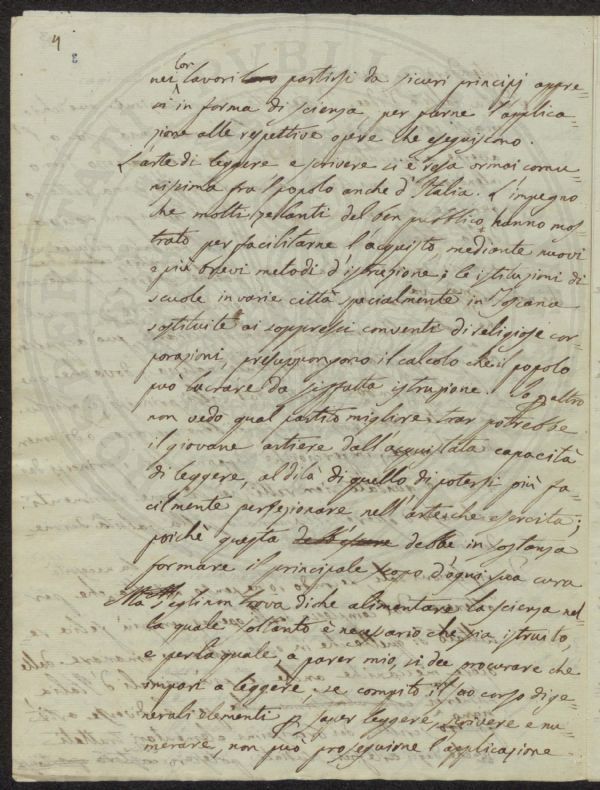 4
3
nei lor lavori loro partissi da sicuri principj appre=
si in forma di scienza, per farne l'applica=
zione alle respettive opere che eseguiscono.
L'arte di leggere e scrivere si è resa ormai comu=
nissima fra 'l popolo anche d'Italia. L'impegno
che molti zelanti del ben pubblico, hanno mos=
trato per facilitarne l'acquisto, mediante nuovi
e più brevi metodi d'istruzione; le istituzioni di
scuole in varie città specialmente in Toscana
sostituite ai soppressi conventi di religiose cor=
porazioni, presuppongono il calcolo che il popolo
può lucrare da siffatta istruzione. Io peraltro
non vedo qual partito migliore trar potrebbe
il giovane artiere dall'acquistata capacità
di leggere, al di là di quello di potersi più fa=
cilmente perfezionare nell'arte che esercita;
poichè questa debbe in sostanza
formare il principale scopo d'ogni sua cura
Ma s'egli non trova di che alimentare la scienza nel=
la quale soltanto è necessario che sia istruito,
e per la quale, a parer mio, si dee procurare che
impari a leggere, se compito il suo corso di ge=
nerali elementi p saper leggere, scrivere e nu=
merare, non può proseguirne l'applicazione